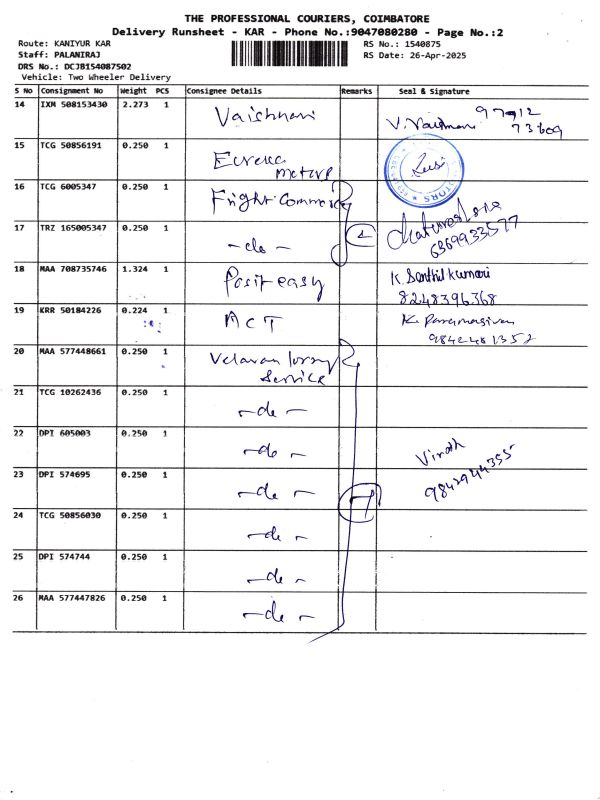 THE PROFESSIONAL COURIERS, COIMBATORE
Delivery Runsheet - KAR - Phone No.:9047080280 - Page No.:2
Route: KANIYUR KAR RS No.: 1540875
Staff: PALANIRAJ RS Date: 26-Apr-2025
DRS No.: DCJB154087502
Vehicle: Two Wheeler Delivery
S No Consignment No Weight PCS Consignee Details Remarks Seal & Signature
14 IXM 508153430 2.273 1 Vaishnavi V. Vaishnavi 97912
73609
15 TCG 50856191 0.250 1 Eureka
Motors
16 TCG 6005347 0.250 1 Fright Commerce
17 TRZ 165005347 0.250 1 -do- 6369933577
18 MAA 708735746 1.324 1 Posit easy K. Senthil kumari
8248396368
19 KRR 50184226 0.224 1 ACT K. Paramasivan
9842481352
20 MAA 577448661 0.250 1 Velavan lorry
Service
21 TCG 10262436 0.250 1 -do-
22 DPI 605003 0.250 1 -do-
23 DPI 574695 0.250 1 -do- 7 9842944355
24 TCG 50856030 0.250 1 -do-
25 DPI 574744 0.250 1 -do-
26 MAA 577447826 0.250 1 -do-